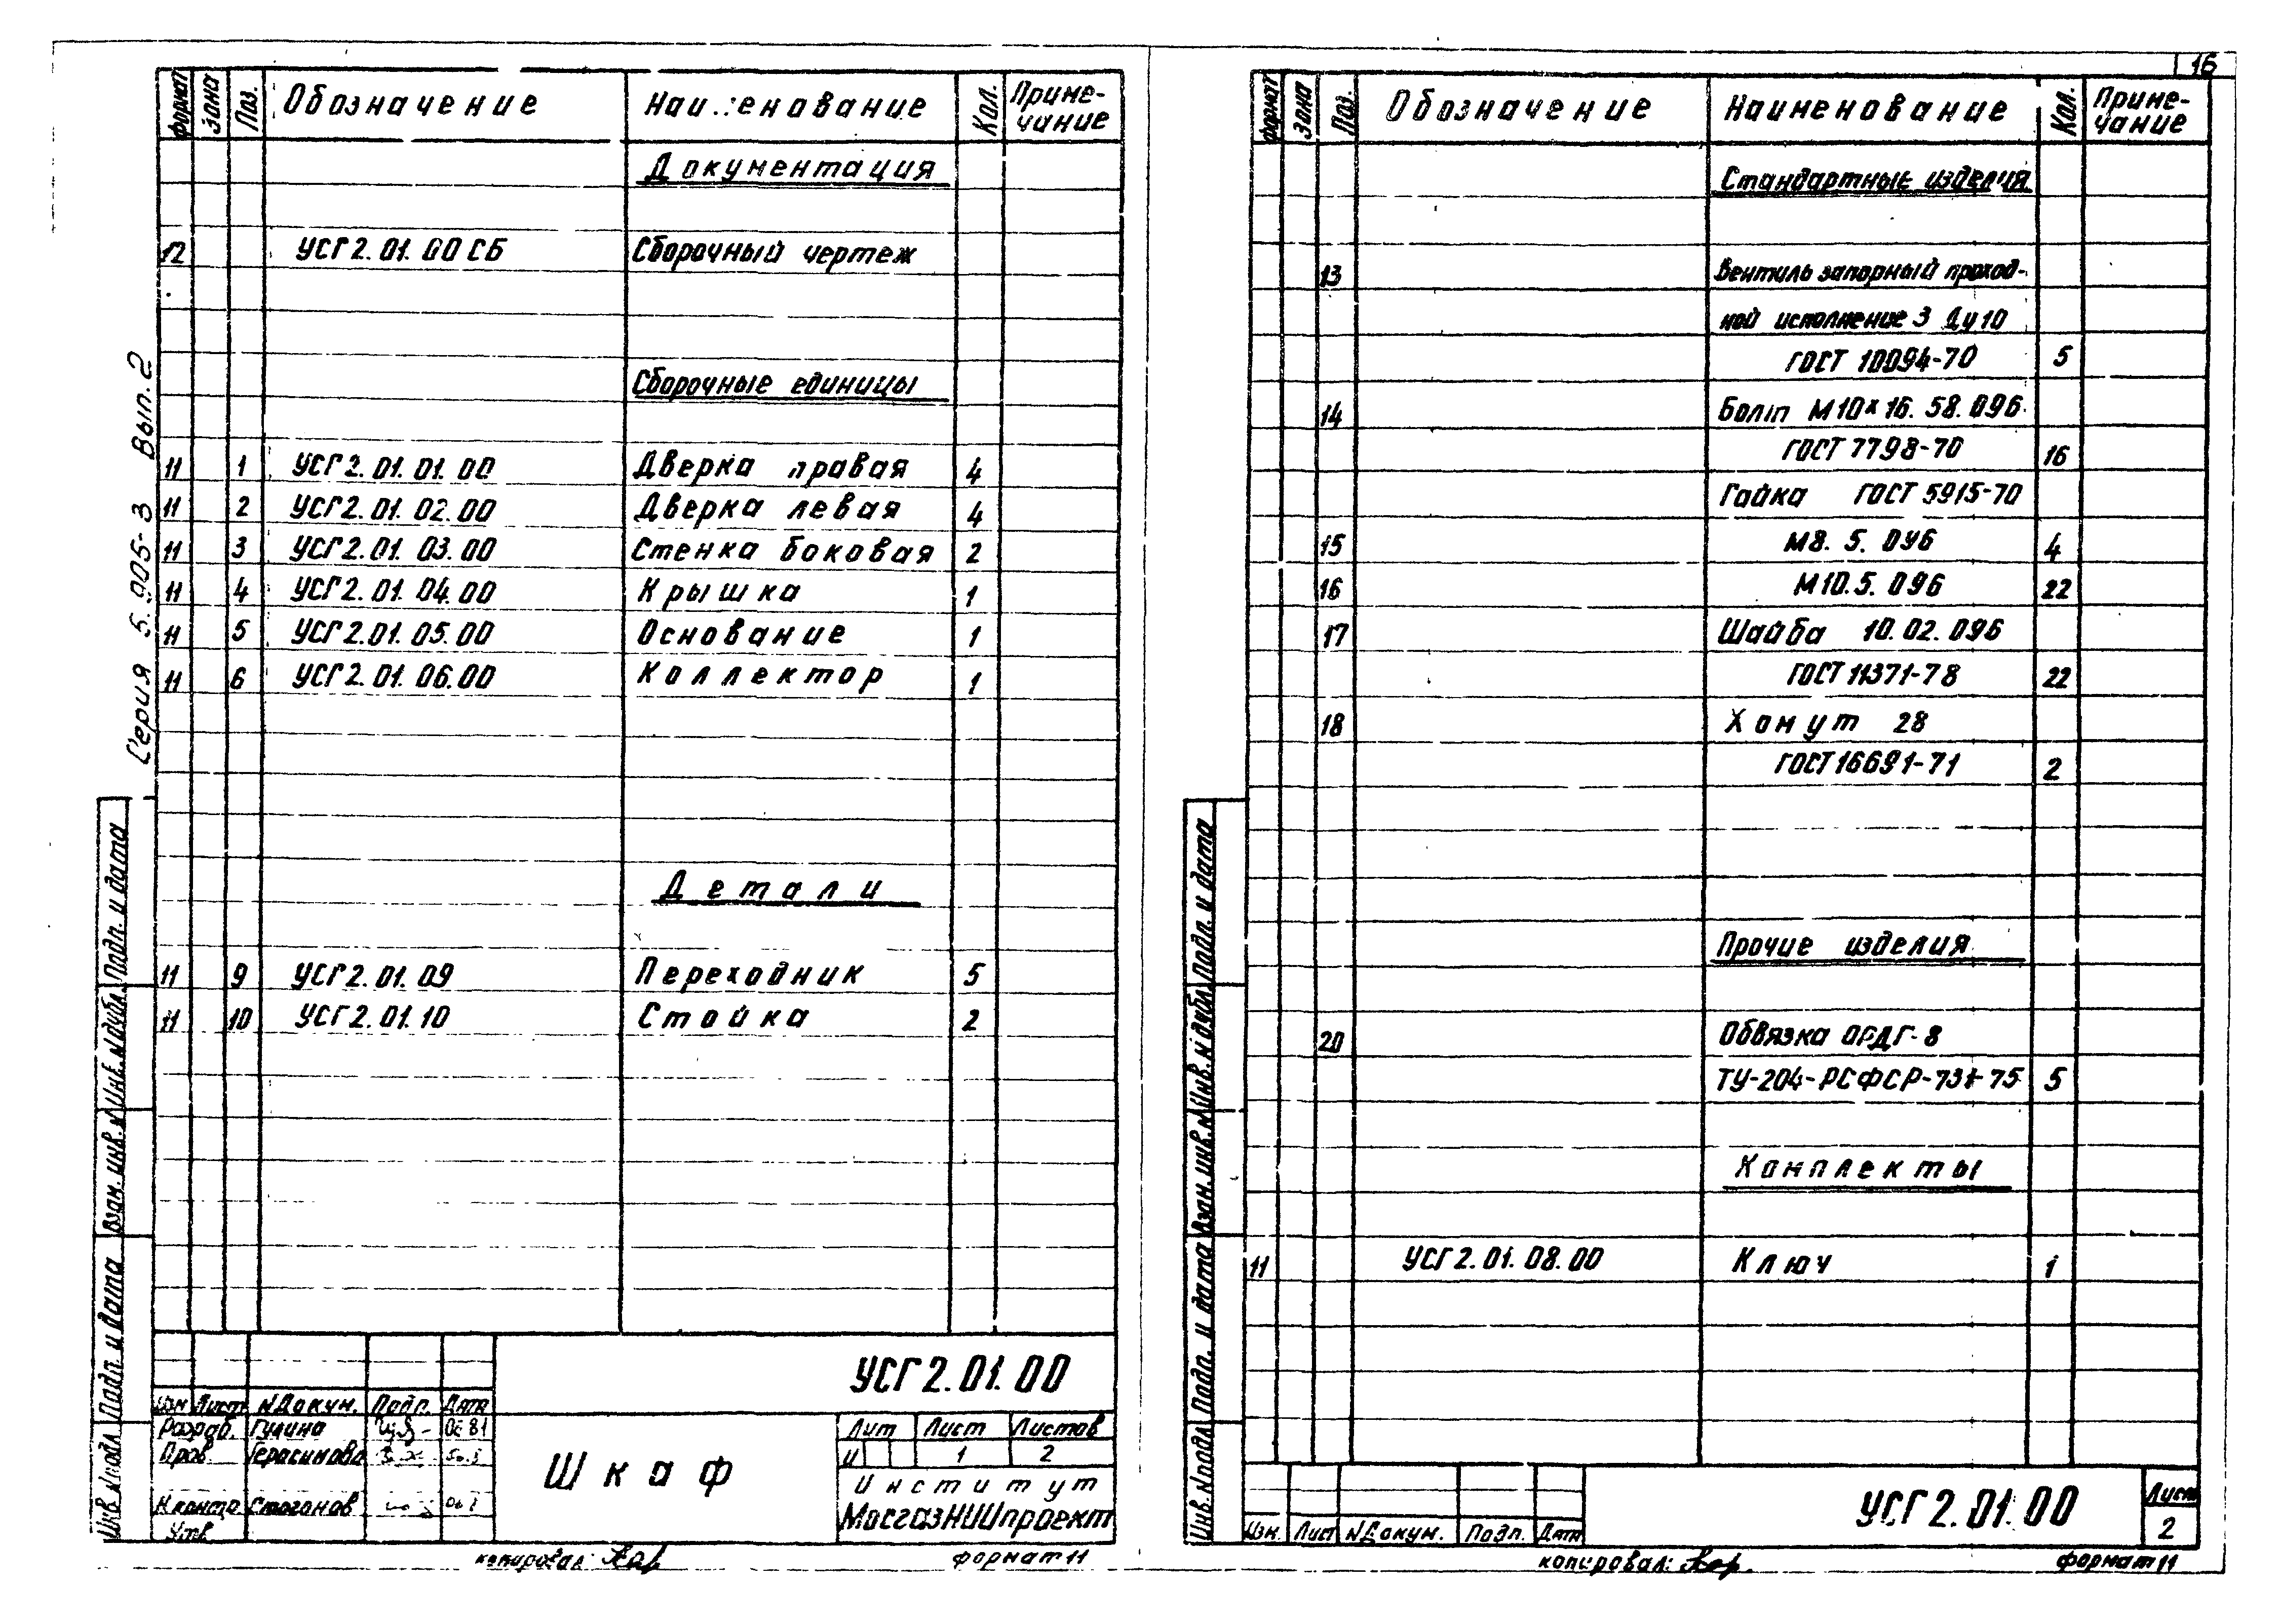 16
Серия 5.905-3 Вып.2
формат Зона Поз. Обозначение Наименование Кол. Приме-
чание
Документация
12 УСГ2.01.00 СБ Сборочный чертеж
Сборочные единицы
11 1 УСГ2.01.01.00 Дверка правая 4
11 2 УСГ2.01.02.00 Дверка левая 4
11 3 УСГ2.01.03.00 Стенка боковая 2
11 4 УСГ2.01.04.00 Крышка 1
11 5 УСГ2.01.05.00 Основание 1
11 6 УСГ2.01.06.00 Коллектор 1
Детали
11 9 УСГ2.01.09 Переходник 5
11 10 УСГ2.01.10 Стойка 2
Инв. N подл Подп. и дата Взам. инв. N Инв. N дубл. Подп. и дата
УСГ2.01.00
Изм Лист N Докум. Подп. Дата
Разраб. Гулина 0681
Пров. Герасимова
Н.контр Стоганов
Утв
Шкаф
Лит Лист Листов
И 1 2
Институт
МосгазНИИпроект
копировал: Кор
формат 11
формат Зона Поз. Обозначение Наименование Кол. Приме-
чание
Стандартные изделия
13 Вентиль запорный проход-
ной исполнение 3 Ду10
ГОСТ 10094-70 5
14 Болт М10х16.58.096
ГОСТ 7798-70 16
Гайка ГОСТ 5915-70
15 М8.5.096 4
16 М10.5.096 22
17 Шайба 10.02.096
ГОСТ 11371-78 22
18 Хомут 28
ГОСТ 16691-71 2
Прочие изделия
20 Обвязка ОРДГ-8
ТУ-204-РСФСР-731-75 5
Комплекты
11 УСГ2.01.08.00 Ключ 1
Инв. N подл Подп. и дата Взам. инв. N Инв. N дубл Подп. и дата
Изм. Лист N Докум. Подп. Дата
УСГ2.01.00
Лист
2
копировал: Кор.
формат 11